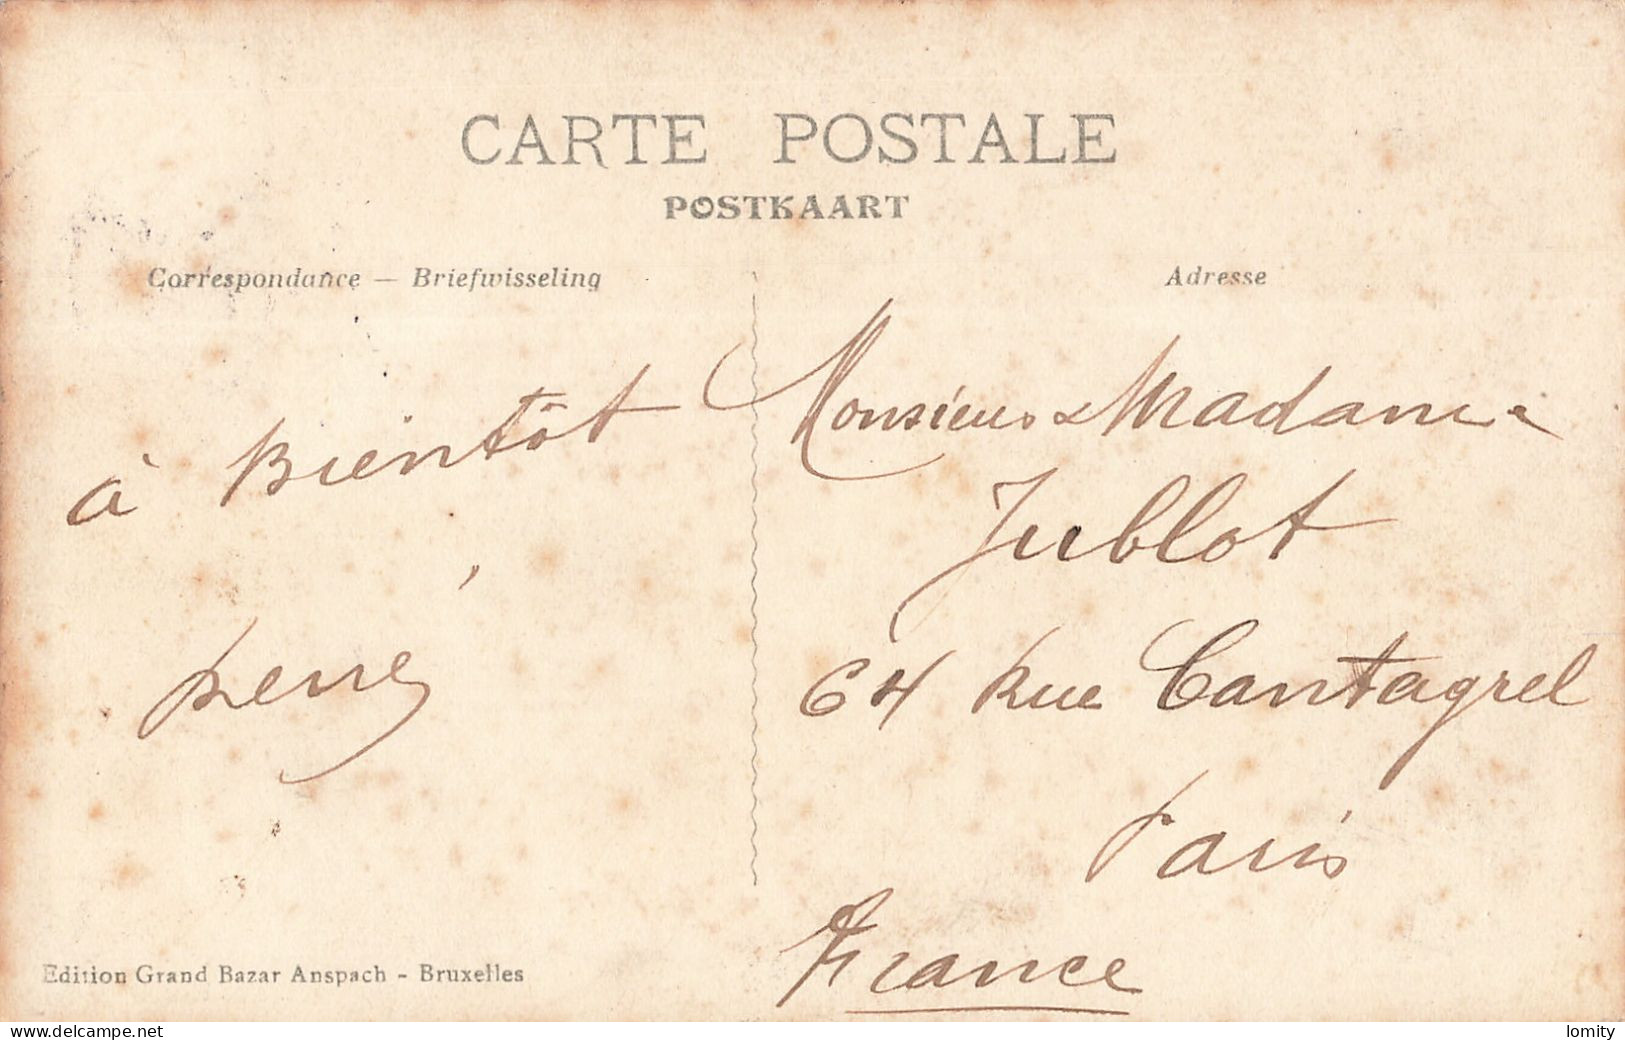 CARTE POSTALE
POSTKAART
Correspondance — Briefwisseling
Adresse
à Bientôt
René
Monsieur & Madame
Jublot
64 Rue Cantagrel
Paris
France
Edition Grand Bazar Anspach - Bruxelles
www.delcampe.net
lomity